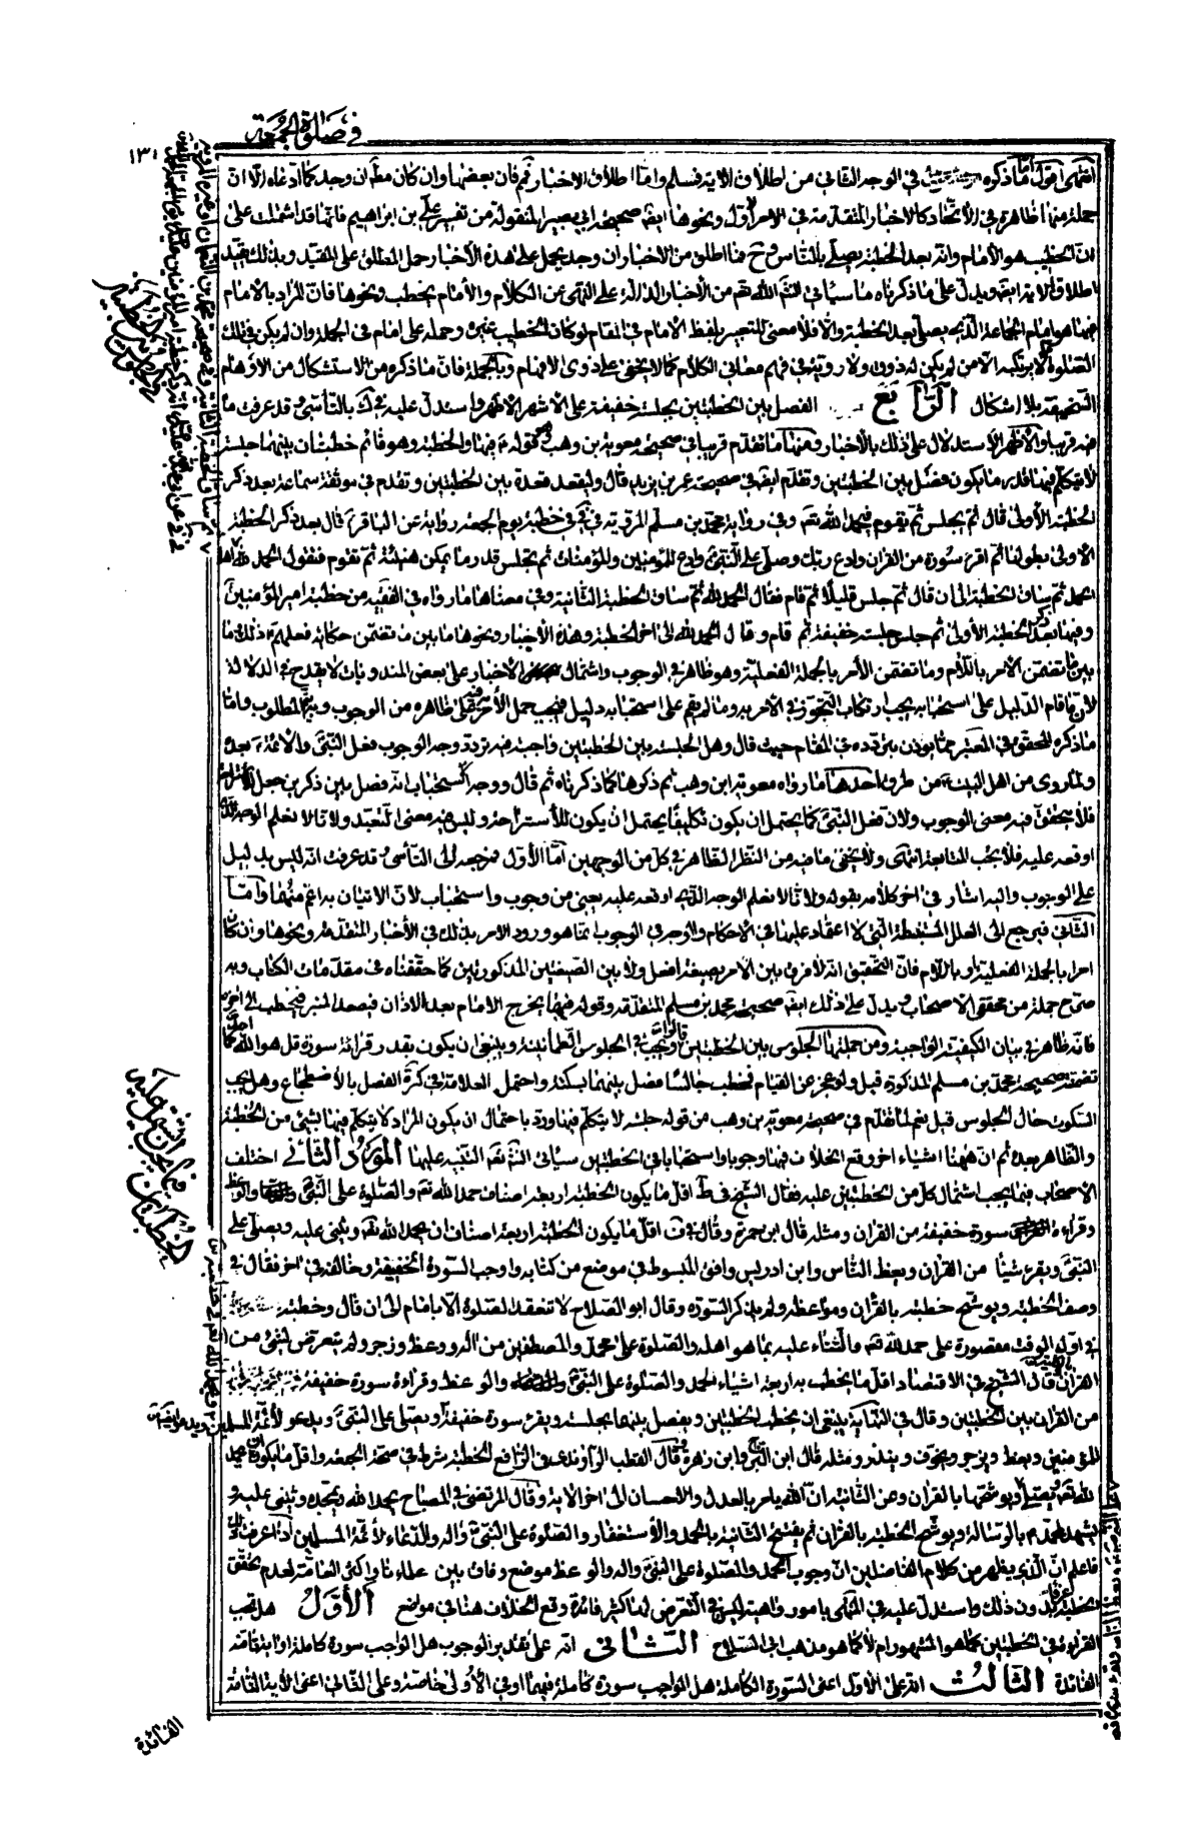 في صلوة الجمعة
١٣٠
انتهى اقول اما ما ذكره في الوجه الثاني من اطلاق الاية فمسلم واما اطلاق الاخبار نعم فان بعضها وان كان مطلقا وجد كما ادعاه الا ان
جملة منها ظاهرة في الاتحاد كالاخبار المتقدمة في الامر الاول ونحوها ايضا صحيحة ابي بصير المنقولة من تفسير علي بن ابراهيم فانها قد اشتملت على
ان الخطيب هو الامام وانه بعد الخطبة يصلي بالناس وح فما اطلق من الاخبار ان وجد يحمل على هذه الاخبار حمل المطلق على المقيد وبذلك يقيد
اطلاق الاية ايضا ويدل على ما ذكرناه ما سيأتي انشاء الله تعم من الاخبار الدالة على النهي عن الكلام والامام يخطب ونحوها فان المراد بالامام
فيها هو امام الجماعة الذي يصلي بعد الخطبة والا فلا معنى للتعبير بلفظ الامام في المقام لو كان الخطيب غيره وحمله على امام في الجملة وان لم يكن في تلك
الصلوة لا يرتكبه الا من لم يكن له ذوق ولا روية في فهم معاني الكلام كما لا يخفى على ذوي الافهام وبالجملة فان ما ذكره من الاستشكال من الأوهام
السخيفة بلا اشكال الرابع الفصل بين الخطبتين بجلسة خفيفة على الاشهر الاظهر واستدل عليه في ك بالتأسي وقد عرفت ما
فيه قريبا والاظهر الاستدلال على ذلك بالأخبار ومنها ما تقدم قريبا في صحيحة معوية بن وهب قوله ع فيها والخطبة وهو قائم خطبتان بينهما جلسة
لا يتكلم فيها قدر ما يكون فصل بين الخطبتين وتقدم ايضا في صحيحة عمر بن يزيد قال وليقعد قعدة بين الخطبتين وتقدم في موثقة سماعة بعد ذكر
الخطبة الأولى قال ثم يجلس ثم يقوم فيحمد الله تعم وفي رواية محمد بن مسلم المروية في في في خطبة يوم الجمعة رواية عن الباقر ع قال بعد ذكر الخطبة
الاولى بطولها ثم اقرء سورة من القران وادع ربك وصل على النبي وادع للمؤمنين والمؤمنات ثم تجلس قدر ما يمكن هنيئة ثم تقوم فتقول الحمد لله
الحمد ثم ساق الخطبة الى ان قال ثم جلس قليلا ثم قام فقال الحمد لله ثم ساق الخطبة الثانية وفي معناها ما رواه في الفقيه من خطبة امير المؤمنين
وفيها بعد ذكر الخطبة الأولى ثم جلس جلسة خفيفة ثم قام وقال الحمد لله الى اخر الخطبة وهذه الأخبار ونحوها ما بين ما تضمن حكاية فعلهم ع ذلك وما
بين ما تضمن الامر باللام وما تضمن الأمر بالجملة الفعلية وهو ظاهر في الوجوب واشتمال الاخبار على بعض المندوبات لا يقدح في الدلالة
لان ما قام الدليل على استحبابه يجب ارتكاب التجوز في الأمر به وما لم يقم على استحبابه دليل فيجب حمل الأمر فيه على ظاهره من الوجوب وبه يتم المطلوب واما
ما ذكره المحقق في المعتبر مما يؤذن بتردده في المقام حيث قال وهل الجلسة بين الخطبتين واجبة فيه تردد وجه الوجوب فعل النبي والائمة ع بعده
ولما روي من اهل البيت ع من طرق احدها ما رواه معوية ابن وهب ثم ذكرها كما ذكرناه ثم قال ووجه الاستحباب انه فصل بين ذكرين جعل للاستراحة
فلا يتحقق فيه معنى الوجوب ولان فعل النبي كما يحتمل ان يكون تكليفا يحتمل ان يكون للأستراحة وليس فيه معنى التعبد ولانا لا نعلم الوجه الذي
اوقعه عليه فلا يجب المتابعة انتهى ولا يخفى ما فيه من النظر الظاهر في كل من الوجهين اما الأول فمرجعه الى التأسي وقد عرفت انه ليس بدليل
على الوجوب واليه اشار في اخر كلامه بقوله ولانا لا نعلم الوجه الذي اوقعه عليه يعني من وجوب واستحباب لأن الاتيان به اعم منهما واما
الثاني فيرجع الى العلل المستنبطة التي لا اعتماد عليها في الاحكام والمرجع في الوجوب انما هو ورود الامر بذلك في الأخبار المتقدمة ونحوها وان كان
امرا بالجملة الفعلية او باللام فان التحقيق انه لا فرق بين الامر بصيغة افعل ولا بين الصيغتين المذكورتين كما حققناه في مقدمات الكتاب وبه
صرح جملة من محققي الاصحاب ويدل على ذلك ايضا صحيحة محمد بن مسلم المتقدمة وقوله فيها يخرج الامام بعد الاذان فيصعد المنبر فيخطب الى اخره
فانه ظاهر في بيان الكيفية الواجبة ومن جملتها الجلوس بين الخطبتين قالوا ويجب في الجلوس الطمأنينة وينبغي ان يكون بقدر قرائة سورة قل هو الله احد كما
تضمنته صحيحة محمد بن مسلم المذكورة قيل ولو عجز عن القيام فخطب جالسا فصل بينهما بسكتة واحتمل العلامة في كرة الفصل بالاضطجاع وهل يجب
السكوت حال الجلوس قيل نعم لما تقدم في صحيحة معوية بن وهب من قوله جلسة لا يتكلم فيها ورد باحتمال ان يكون المراد لا يتكلم فيها بشيئ من الخطبة
والظاهر بعده ثم ان هيهنا اشياء اخر وقع الخلاف فيها وجوبا واستحبابا في الخطبتين سيأتي انشاء الله تعم التنبيه عليها المورد الثاني اختلف
الاصحاب فيما يجب اشتمال كل من الخطبتين عليه فقال الشيخ في ط اقل ما يكون الخطبة اربعة اصناف حمد الله تعم والصلوة على النبي واله والوعظ
وقراءة سورة خفيفة من القران ومثله قال ابن حمزة وقال في ف اقل ما يكون الخطبة اربعة اصناف ان يحمد الله تعم ويثني عليه ويصلي على
النبي ويقرء شيئا من القران ويعظ الناس وابن ادريس وافق المبسوط في موضع من كتابه واوجب السورة الخفيفة وخالفه في اخر فقال في
وصف الخطبة ويوشح خطبته بالقران ومواعظه ولم يذكر السورة وقال ابو الصلاح لا تنعقد الصلوة الا بامام الى ان قال وخطبة
في اول الوقت مقصورة على حمد الله تعم والثناء عليه بما هو اهله والصلوة على محمد والمصطفين من اله ووعظ وزجر ولم يتعرض لشيئ من
القران وقال الشيخ في الاقتصاد اقل ما يخطب به اربعة اشياء الحمد والصلوة على النبي واله والوعظ وقراءة سورة خفيفة
من القران بين الخطبتين وقال في النهاية ينبغي ان يخطب الخطبتين ويفصل بينهما بجلسة ويقرء سورة خفيفة ويصلي على النبي ويدعو لأئمة المسلمين ويدعو ايضا
للمؤمنين ويعظ ويزجر ويخوف وينذر ومثله قال ابن البراج وابن زهرة وقال القطب الراوندي في الرائع الخطبة شرط في صحة الجمعة واقل ما يكون ان يحمد
الله تعم ويصلي ويوشحها بالقران وعن الثانية ان الله يأمر بالعدل والاحسان الى اخر الاية وقال المرتضى في المصباح يحمد الله ويمجده ويثني عليه و
يشهد لمحمد ص بالرسالة ويوشح الخطبة بالقران ثم يفتتح الثانية بالحمد والأستغفار والصلوة على النبي واله والدعاء لأئمة المسلمين اذا عرفت ذلك
فاعلم ان الذي يظهر من كلام الفاضلين ان وجوب الحمد والصلوة على النبي واله والوعظ موضع وفاق بين علمائنا واكثر العامة لعدم تحقق
الخطبة عرفا بدون ذلك واستدل عليه في المنتهى بامور واهية ليس في التعرض لها كثير فائدة ووقع الخلاف هنا في مواضع الأول هل تجب
القراءة في الخطبتين كما هو المشهور ام لا كما هو مذهب ابي الصلاح الثاني انه على تقدير الوجوب هل الواجب سورة كاملة او اية تامة
الفائدة الثالث انه على الأول اعني السورة الكاملة هل الواجب سورة كاملة فيهما او في الأولى خاصة وعلى الثاني اعني الاية التامة
الفائدة
فيما يجب اشتمال عليه
الخطبتان